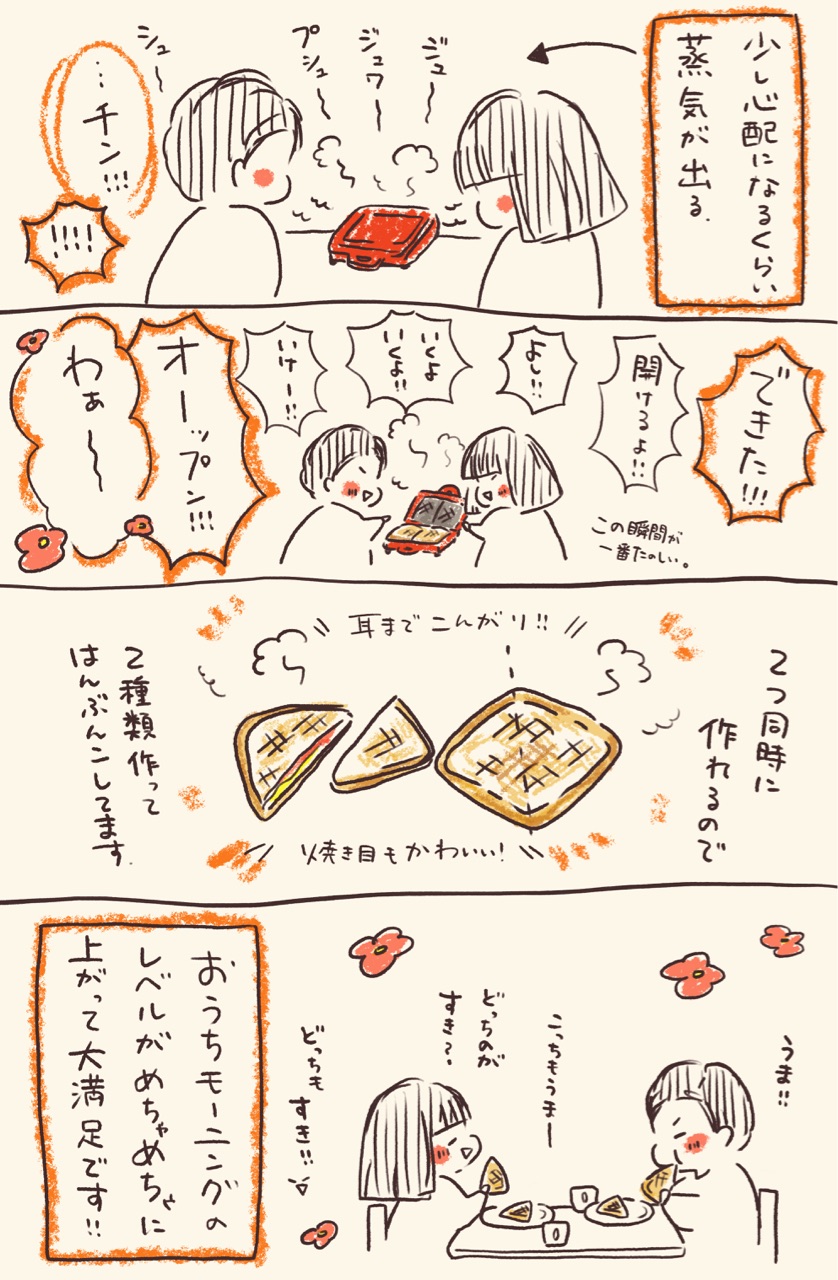 少し心配になるくらい
蒸気が出る.
ジュー
ジュワー
プシュー
シュー
…チン!!!
!!!!
できた!!!
開けるよ!!
よし!!
いくよ
いくよ!!
いけー!!
オーップン!!!
わぁ〜
この瞬間が
一番たのしい。
耳までこんがり!!
2つ同時に
作れるので
焼き目もかわいい!
2種類作って
はんぶんこしてます.
うま!!
こっちもうまー
どっちのが
すき?
どっちも
すき!!
おうちモーニングの
レベルがめちゃめちゃに
上がって大満足です!!